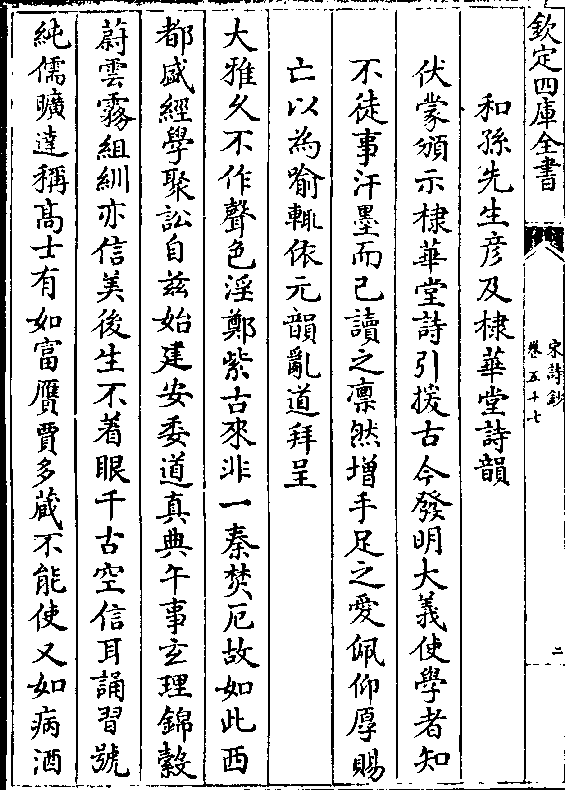 欽定四庫全書
宋詩鈔
卷五十七
二
和孫先生彦及棣華堂詩韻
伏蒙頒示棣華堂詩引援古今發明大義使學者知
不徒事汗墨而已讀之凛然增手足之愛佩仰厚賜
亡以為喻輒依元韻亂道拜呈
大雅久不作聲色淫鄭紫古來非一秦焚厄故如此西
都盛經學聚訟自兹始建安委道真典午事玄理錦縠
蔚雲霧組紃亦信美後生不着眼千古空信耳誦習號
純儒曠達稱髙士有如富贋賈多蔵不能使又如病酒